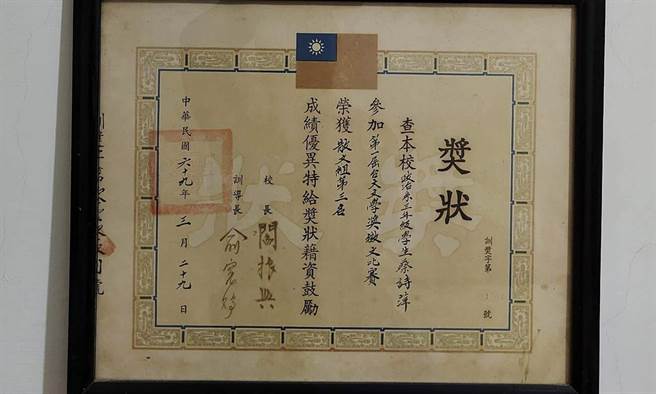 獎狀
訓獎字第 號
查本校政治系三年級學生蔡詩萍
參加第一屆台大文學獎散文比賽
榮獲散文組第三名
成績優異特給獎狀藉資鼓勵
校長 閻振興
訓導長 俞寬賜
中華民國六十九年三月二十九日
獎狀